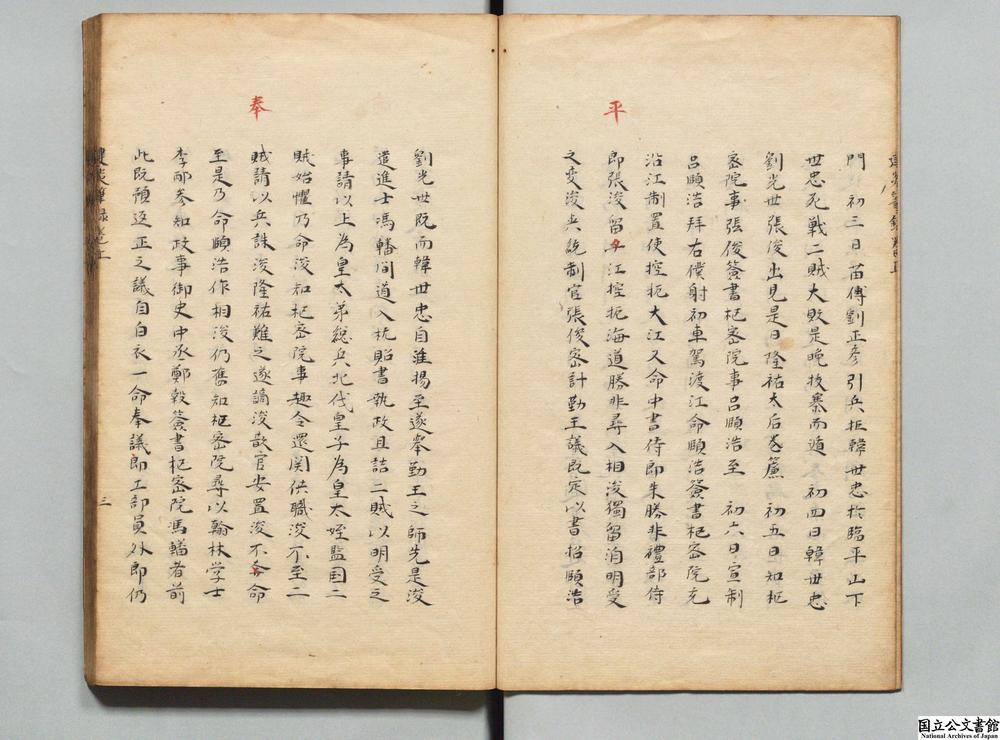 門 初三日苗傅劉正彥引兵拒韓世忠於臨平山下
世忠死戰二賊大敗是晚拔寨而遁 初四日韓世忠
劉光世張俊出見是日隆祐太后卷簾 初五日知樞
密院事張俊簽書樞密院事呂頤浩至 初六日宣制
呂頤浩拜右僕射初車駕渡江命頤浩簽書樞密院充
沿江制置使控扼大江又命中書侍郎朱勝非禮部侍
平
郎張浚留 江控扼海道勝非尋入相浚獨留洎明受
之變浚兵說制官張俊密計勤王議既定以書招頤浩
劉光世既而韓世忠自淮揚至遂舉勤王之師先是浚
遣進士馮轓間道入杭貽書執政且詰二賊以明受之
事請以上為皇太弟總兵北伐皇子為皇太姪監國二
賊始懼乃命浚知樞密院事趣令還闕供職浚不至二
奉
賊請以兵誅浚隆祐難之遂謫浚散官安置浚不 命
至是乃命頤浩作相浚仍舊知樞密院尋以翰林学士
李邴参知政事御史中丞鄭瑴簽書樞密院馮轓者前
此既預返正之議自白衣一命奉議郎工部員外郎仍
三
国立公文書館
National Archives of Japan